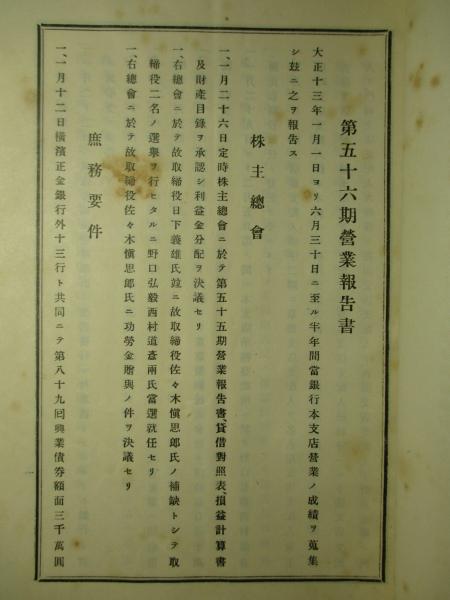 第五十六期營業報告書
大正十三年一月一日ヨリ六月三十日ニ至ル半年間當銀行本支店營業ノ成績ヲ蒐集
シ玆ニ之ヲ報告ス
株主總會
一、一月二十六日定時株主總會ニ於テ第五十五期營業報告書、貸借對照表、損益計算書
及財產目錄ヲ承認シ利益金分配ヲ決議セリ
一、右總會ニ於テ故取締役日下義雄氏竝ニ故取締役佐々木愼思郎氏ノ補缺トシテ取
締役二名ノ選擧ヲ行ヒタルニ野口弘毅西村道彥兩氏當選就任セリ
一、右總會ニ於テ故取締役佐々木愼思郎氏ニ功勞金贈與ノ件ヲ決議セリ
庶務要件
一、一月十二日橫濱正金銀行外十三行ト共同ニテ第八十九回興業債券額面三千萬圓